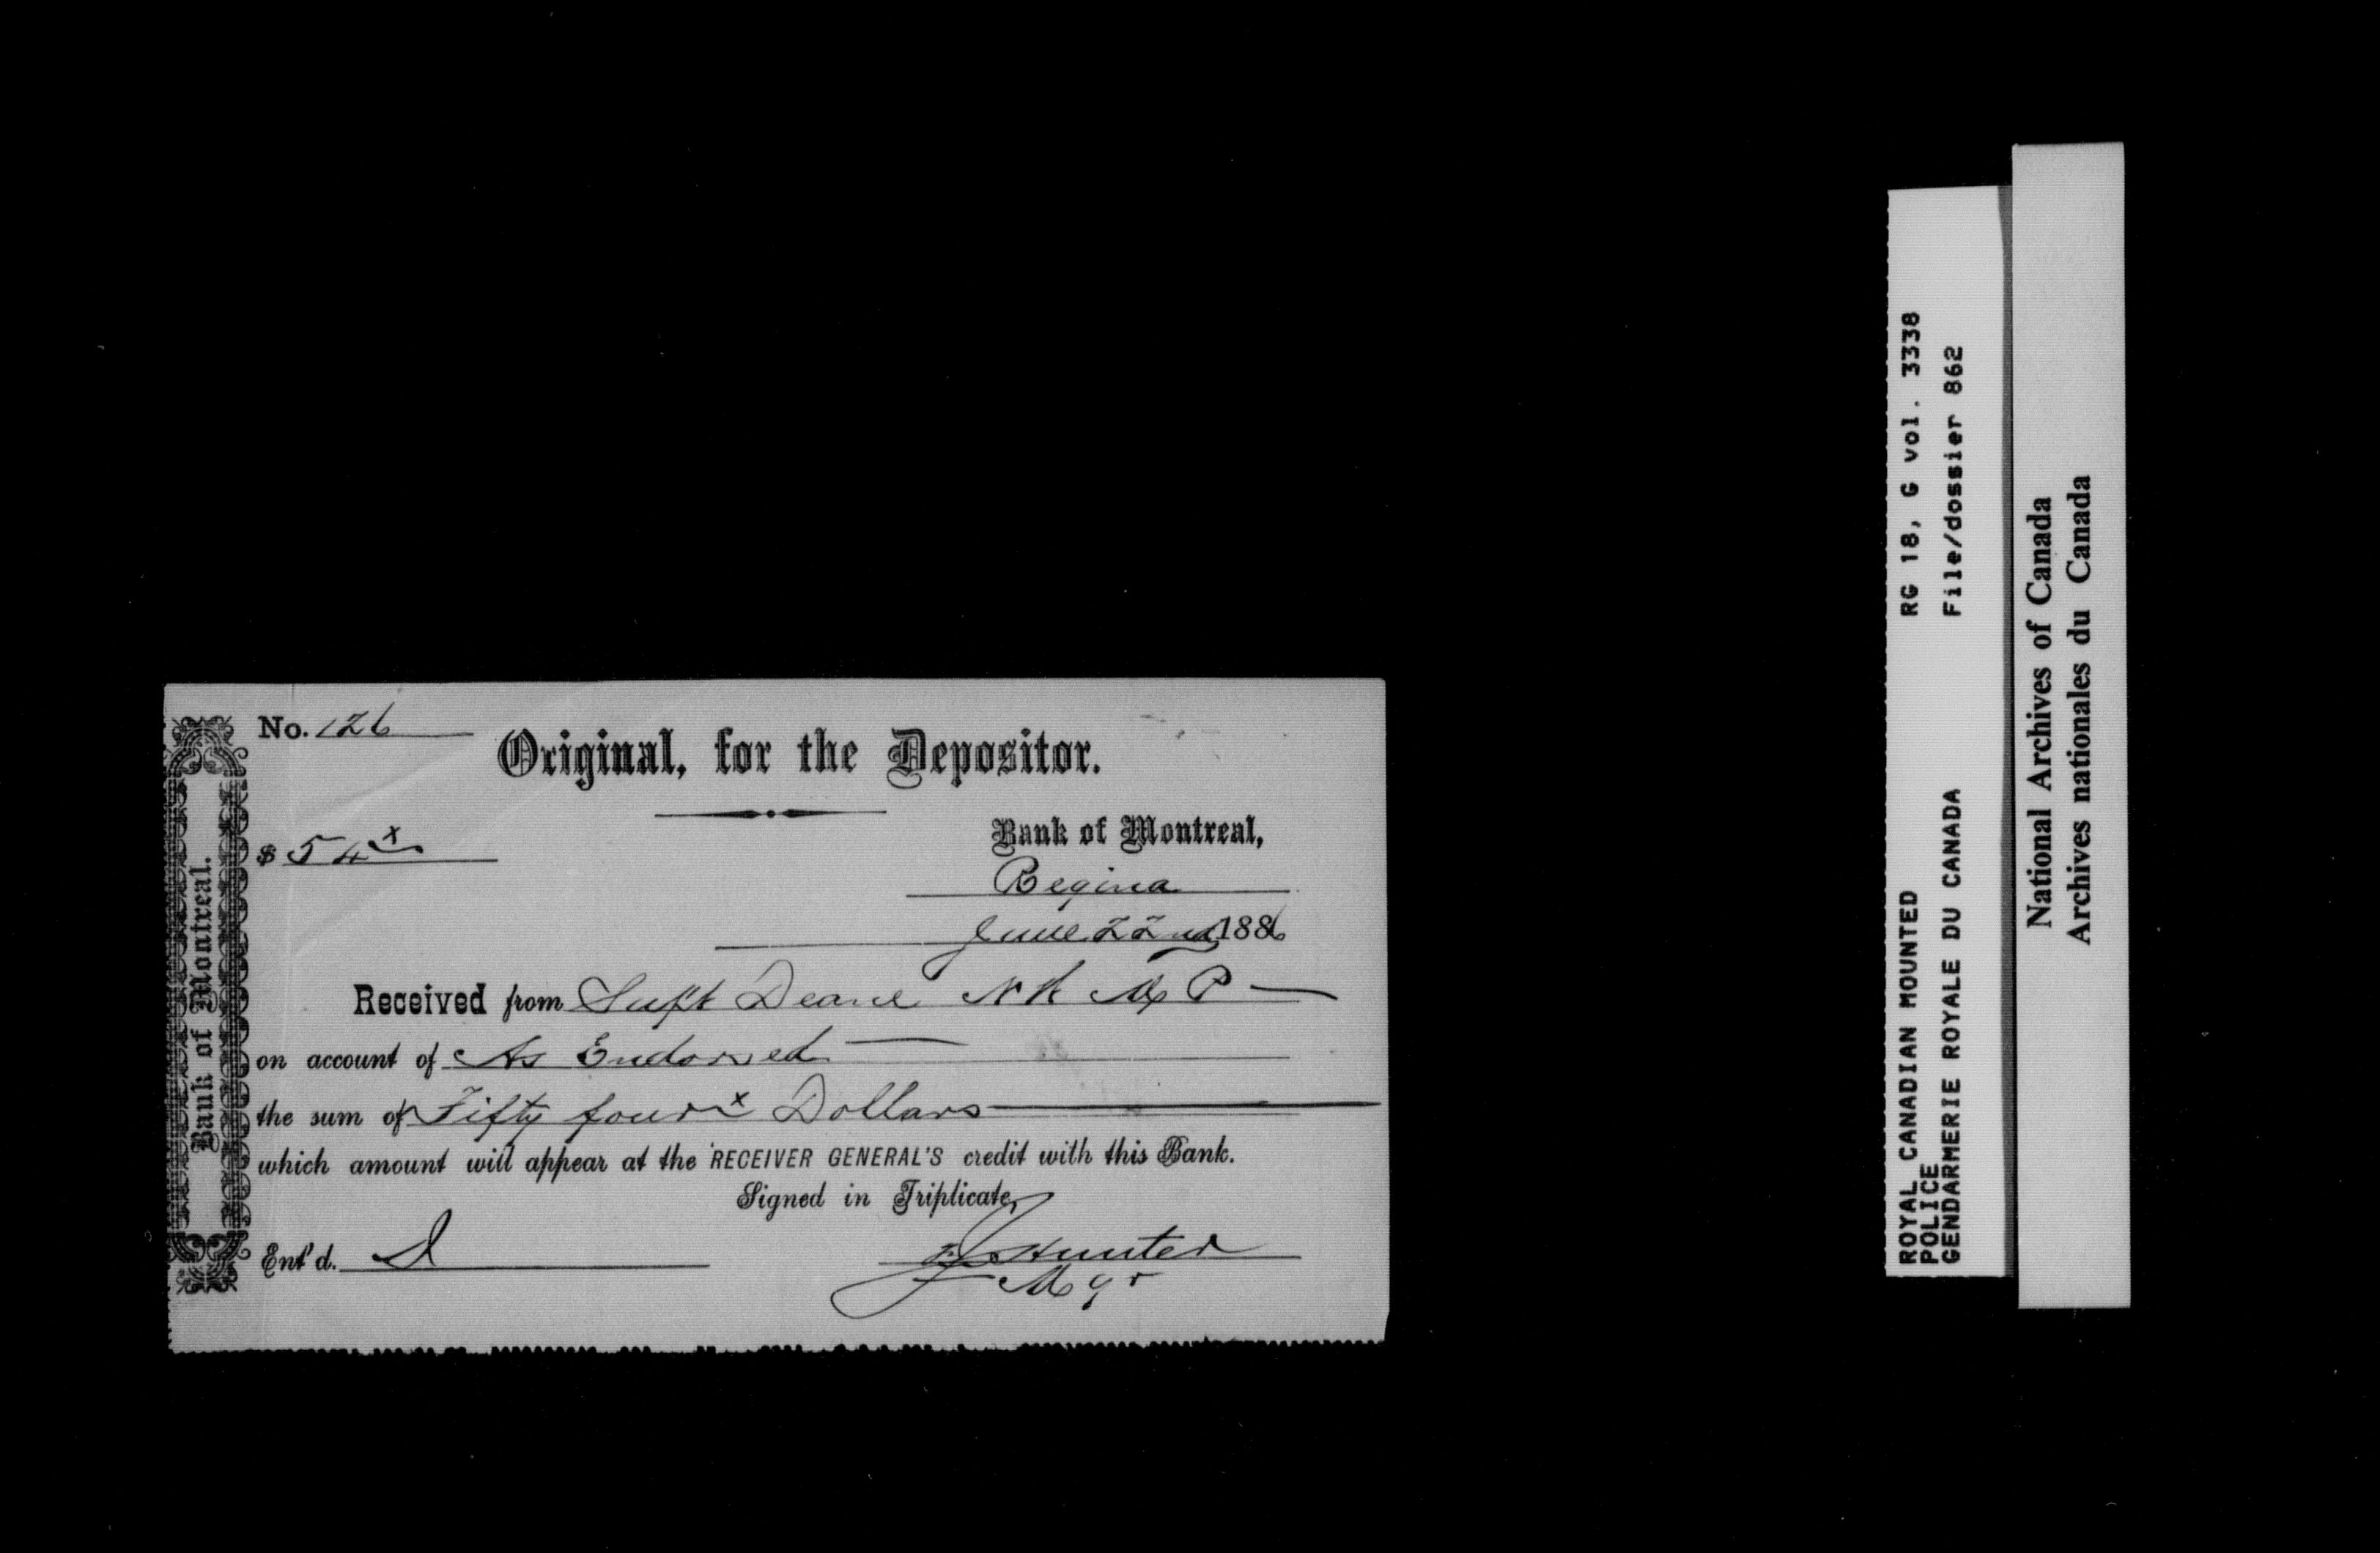 No. 126
Original, for the Depositor.
$ 54 x
Bank of Montreal,
Regina
June 22nd 1886
Received from Supt Deane N W M P
on account of As Endorsed
the sum of Fifty four x Dollars
which amount will appear at the RECEIVER GENERAL'S credit with this Bank.
Signed in Triplicate,
Ent'd.
Hunter
Mgr
Bank of Montreal.
ROYAL CANADIAN MOUNTED
POLICE
GENDARMERIE ROYALE DU CANADA
RG 18, G vol. 3338
File/dossier 862
National Archives of Canada
Archives nationales du Canada